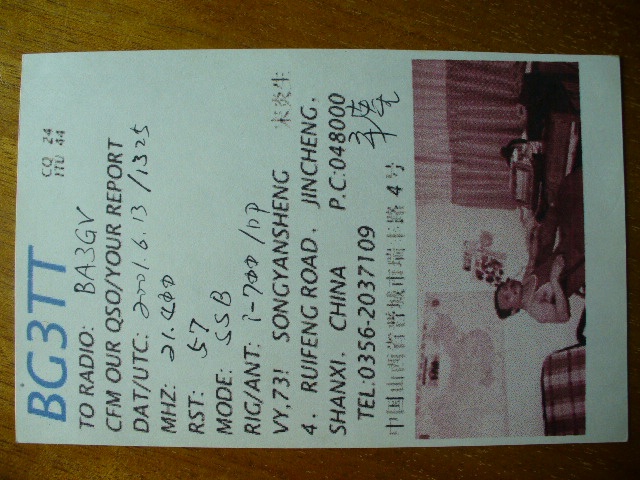 BG3TT
CQ 24
ITU 44
TO RADIO: BA3GV
CFM OUR QSO/YOUR REPORT
DAT/UTC: 2001.6.13/1325
MHZ: 21.400
RST: 57
MODE: SSB
RIG/ANT: /DP
VY,73! SONGYANSHENG 宋炎生
4. RUIFENG ROAD. JINCHENG.
SHANXI. CHINA P.C:048000
TEL:0356-2037109
中国山西省晋城市瑞丰路 4 号